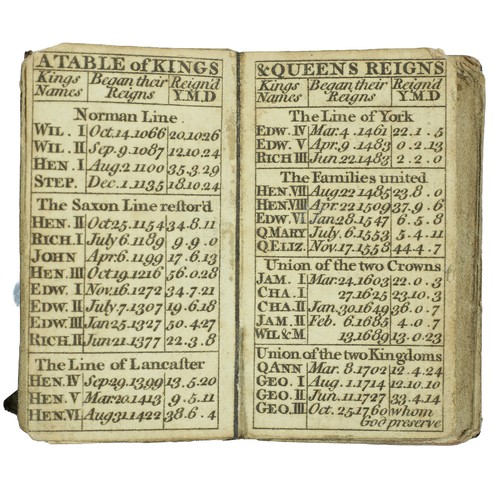 A TABLE of KINGS
Kings Names Began their Reigns Reign'd Y.M.D
Norman Line
WIL. I Oct.14.1066 20.10.26
WIL. II Sep.9.1087 12.10.24
HEN. I Aug.2.1100 35.3.29
STEP. Dec.1.1135 18.10.24
The Saxon Line restor'd
HEN. II Oct.25.1154 34.8.11
RICH. I July 6.1189 9.9.0
JOHN Apr.6.1199 17.6.13
HEN. III Oct.19.1216 56.0.28
EDW. I Nov.16.1272 34.7.21
EDW. II July.7.1307 19.6.18
EDW. III Jan.25.1327 50.4.27
RICH. II Jun.21.1377 22.3.8
The Line of Lancaster
HEN. IV Sep.29.1399 13.5.20
HEN. V Mar.20.1413 9.5.11
HEN. VI Aug.31.1422 38.6.4
& QUEENS REIGNS
Kings Names Began their Reigns Reign'd Y.M.D
The Line of York
EDW. IV Mar.4.1461 22.1.5
EDW. V Apr.9.1483 0.2.13
RICH III Jun.22.1483 2.2.0
The Families united
HEN. VII Aug.22.1485 23.8.0
HEN. VIII Apr.22.1509 37.9.6
EDW. VI Jan.28.1547 6.5.8
Q MARY July.6.1553 5.4.11
Q. ELIZ. Nov.17.1558 44.4.7
Union of the two Crowns
JAM. I Mar.24.1603 22.0.3
CHA. I 27.1625 23.10.3
CHA. II Jan.30.1649 36.0.7
JAM. II Feb.6.1685 4.0.7
WIL & M 13.1689 13.0.23
Union of the two Kingdoms
Q ANN Mar.8.1702 12.4.24
GEO. I Aug.1.1714 12.10.10
GEO. II Jun.11.1727 33.4.14
GEO. III Oct.25.1760 whom
God preserve